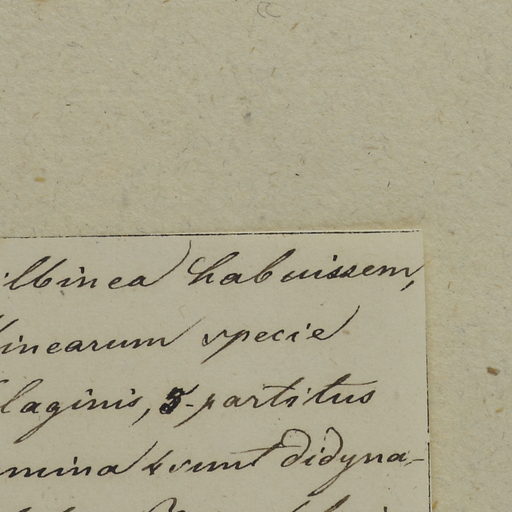 ilbinea habuissem,
linearum specie
laginis, 5-partitus
mina 4 sunt didyna-